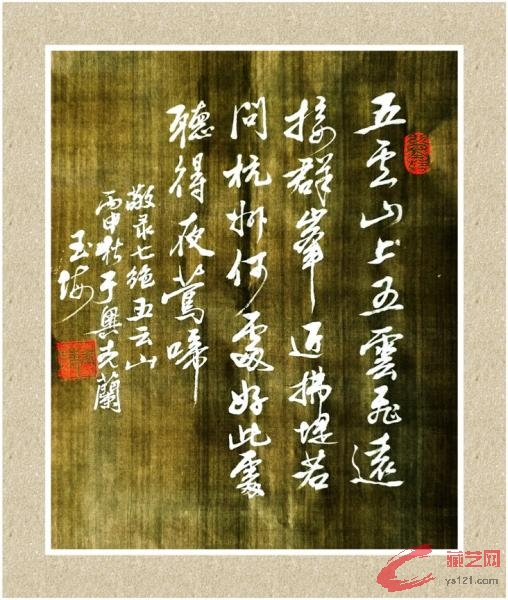 五雲山上五雲飛遠
接群峯近拂堤若
問杭州何處好此處
聽得夜鶯啼
敬录七绝五云山
丙申秋于奥克蘭
玉
藏艺网
ys121.com